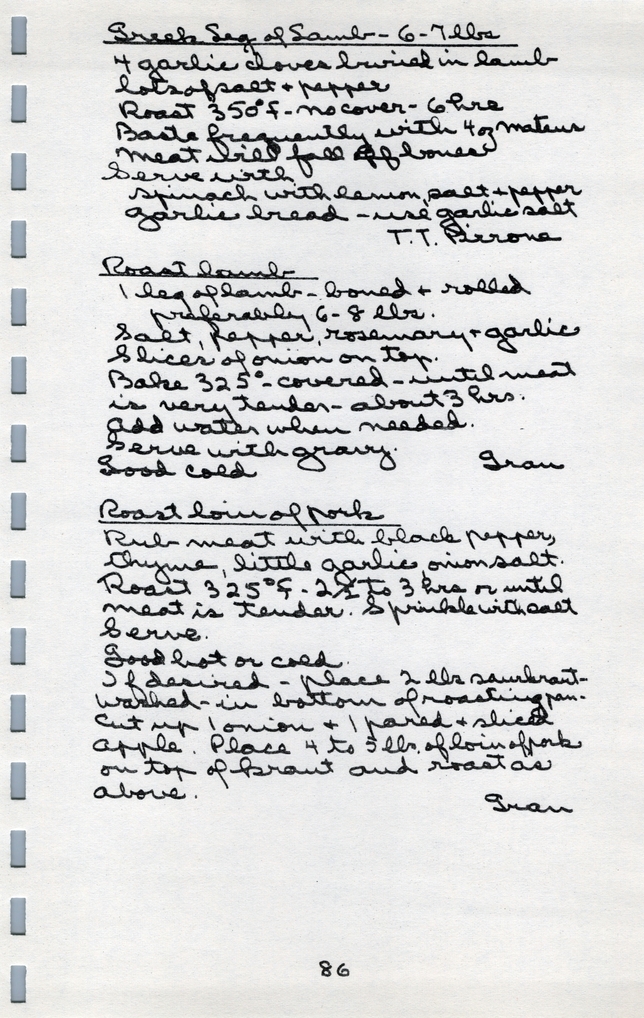 Greek Leg of Lamb - 6-7 lbs
4 garlic cloves buried in lamb
lots of salt + pepper
Roast 350°F - no cover - 6 hrs
Baste frequently with 4 oz mateus
meat will fall off bones
Serve with
spinach with lemon, salt + pepper
garlic bread - use garlic salt
T.T. Pirrone
Roast lamb
1 leg of lamb - boned + rolled
preferably 6-8 lbs.
Salt, pepper, rosemary + garlic
Slices of onion on top.
Bake 325° - covered - until meat
is very tender - about 3 hrs.
Add water when needed.
Serve with gravy.
Good cold
Gran
Roast loin of pork
Rub meat with black pepper,
thyme, little garlic, onion salt.
Roast 325°F - 2½ to 3 hrs or until
meat is tender. Sprinkle with salt
Serve.
Good hot or cold.
If desired - place 2 lbs saurkraut -
washed - in bottom of roasting pan.
Cut up 1 onion + 1 pared + sliced
apple. Place 4 to 5 lbs. of loin of pork
on top of kraut and roast as
above.
Gran
86